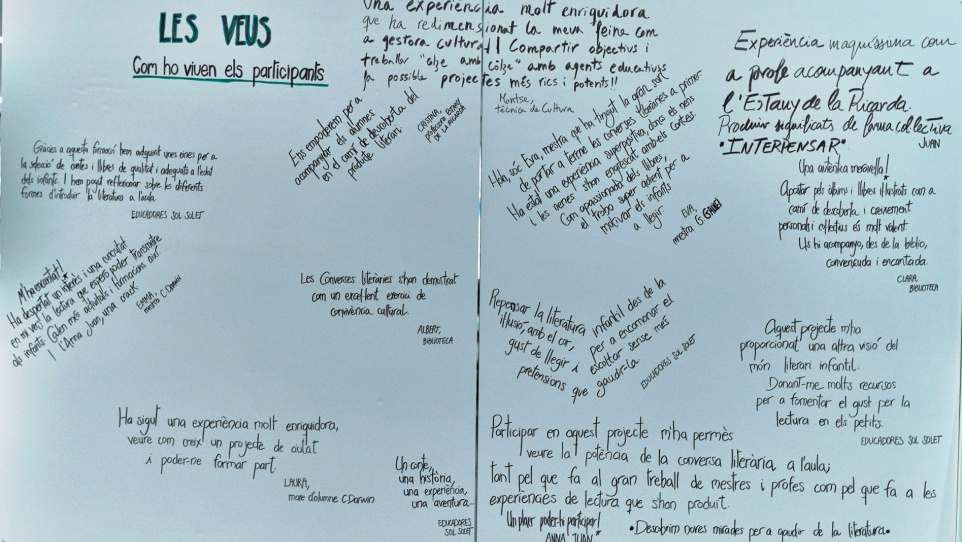 LES VEUS
Com ho viuen els participants
Una experiència molt enriquidora
que ha redimensionat la meva feina com
a gestora cultural! Compartir objectius i
treballar "colze amb colze" amb agents educatius
fa possible projectes més rics i potents!!
Montse,
tècnica de Cultura
Experiència maquíssima com
a profe acompanyant a
l'Estany de la Ricarda.
Produir significats de forma col·lectiva
•INTERPENSAR•
JUAN
Ens empoderem per a
acompanyar els alumnes
en el camí de descoberta del
plaer literari.
CRISTINA,
DE LA RICARDA
Gràcies a aquesta formació hem adquirit unes eines per a
la selecció de contes i llibres de qualitat i adequats a l'edat
dels infants. I hem pogut reflexionar sobre les diferents
formes d'introduir la literatura a l'aula.
EDUCADORES SOL SOLET
Hola, sóc Eva, mestra que ha tingut la gran sort
de portar a terme les converses literàries a primer.
Ha estat una experiència superpositiva, doncs els nens
i les nenes s'han enriquit amb els contes.
Com apassionada dels llibres,
el trobo super adient per a
motivar els infants
a llegir.
EVA,
mestra
Una autèntica meravella!
Apostar pels àlbums i llibres il·lustrats com a
camí de descoberta i creixement
personals i col·lectius és molt valent.
Us hi acompanyo, des de la biblio,
convençuda i encantada.
CLARA,
BIBLIOTECA
M'ha encantat!
Ha despertat un interès i una curiositat
en mi vers la lectura que espero poder transmetre
als infants. Calen més activitats i formacions així.
I l'Anna Juan, una crack
EMMA,
mestra C.Darwin
Les Converses literàries s'han demostrat
com un excel·lent exercici de
convivència cultural.
ALBERT,
BIBLIOTECA
Repensar la literatura infantil des de la
il·lusió, amb el cor, per a encomanar el
gust de llegir i escoltar sense més
pretensions que gaudir-la.
EDUCADORES SOL SOLET
Aquest projecte m'ha
proporcionat una altra visió del
món literari infantil.
Donant-me molts recursos
per a fomentar el gust per la
lectura en els petits.
EDUCADORES SOL SOLET
Ha sigut una experiència molt enriquidora,
veure com creix un projecte de ciutat
i poder-ne formar part.
LAURA,
mare d'alumne C.Darwin
Un conte,
una història,
una experiència,
una aventura...
EDUCADORES
SOL SOLET
Participar en aquest projecte m'ha permès
veure la potència de la conversa literària a l'aula;
tant pel que fa al gran treball de mestres i profes com pel que fa a les
experiències de lectura que s'han produït.
Un plaer poder-hi participar!
ANNA JUAN
•Descobrim noves mirades per a gaudir de la literatura•